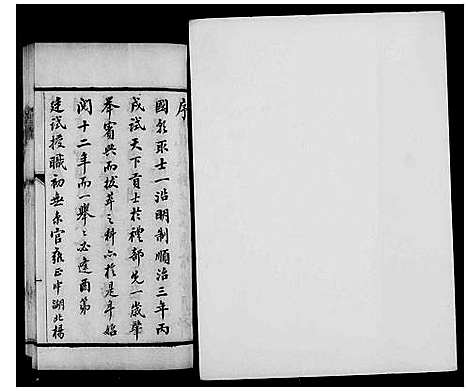 序
國朝取士一沿明制順治三年丙
戌試天下貢士於禮部先一歲肇
舉賓興而拔萃之科亦於是年始
閱十二年而一舉之必逢酉第
廷試授職初無京官雍正中湖北楊